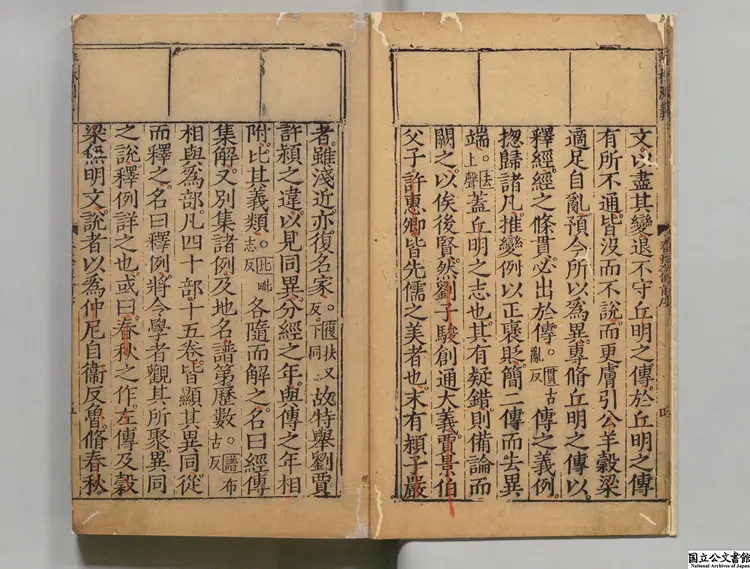 文以盡其變退不守丘明之傳於丘明之傳
有所不通皆沒而不說而更膚引公羊穀梁
適足自亂預今所以爲異專脩丘明之傳以
釋經經之條貫必出於傳。貫古亂反傳之義例
揔歸諸凡推變例以正褒貶簡二傳而去異
端。去上聲蓋丘明之志也其有疑錯則備論而
闕之以俟後賢然劉子駿創通大義賈景伯
父子許惠卿皆先儒之美者也末有潁子嚴
春秋左傳前序
四
者雖淺近亦復名家。復扶又反下同故特舉劉賈
許潁之違以見同異分經之年與傳之年相
附比其義類。比毗志反各隨而解之名曰經傳
集解又別集諸例及地名譜第曆數。譜布古反
相與爲部凡四十部十五卷皆顯其異同從
而釋之名曰釋例將令學者觀其所聚異同
之說釋例詳之也或曰春秋之作左傳及穀
梁無明文說者以爲仲尼自衞反魯脩春秋
五
国立公文書館
National Archives of Japan